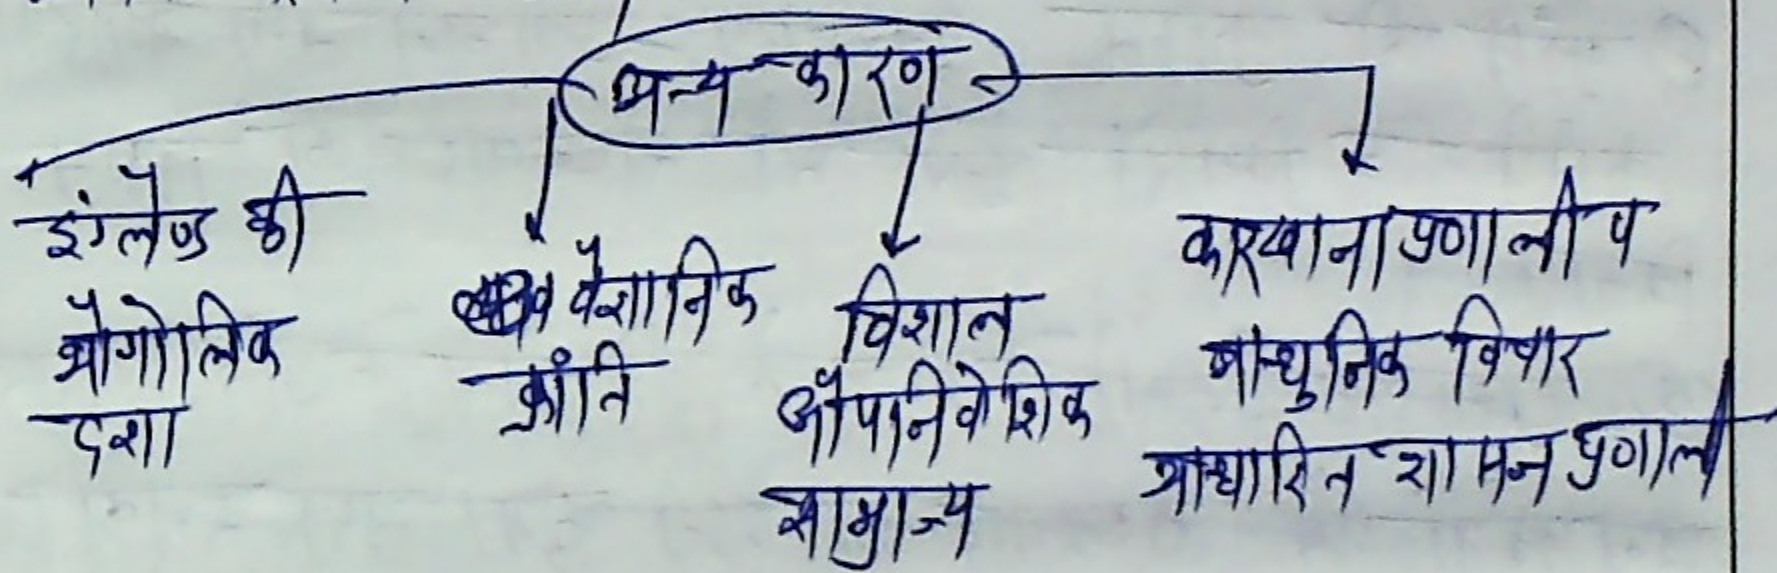 अन्य कारण
इंग्लैण्ड की
भौगोलिक
दशा
वैज्ञानिक
क्रांति
विशाल
औपनिवेशिक
साम्राज्य
कारखाना प्रणाली व
आधुनिक विचार
आधारित शासन प्रणाली